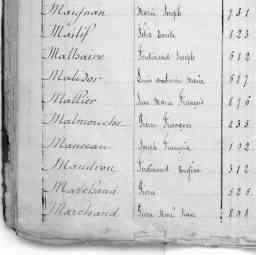 Maujean Marie Joseph 731
Mailif Félix Emile 823
Malhaire Ferdinand Joseph 512
Malidor Louis Antoine Marie 517
Mallier Jean Marie François 876
Malmouche Pierre François 235
Manseau Joseph François 132
Maudron Ferdinand Eugène 312
Marchand Pierre 525
Marchand Pierre René Jean 838